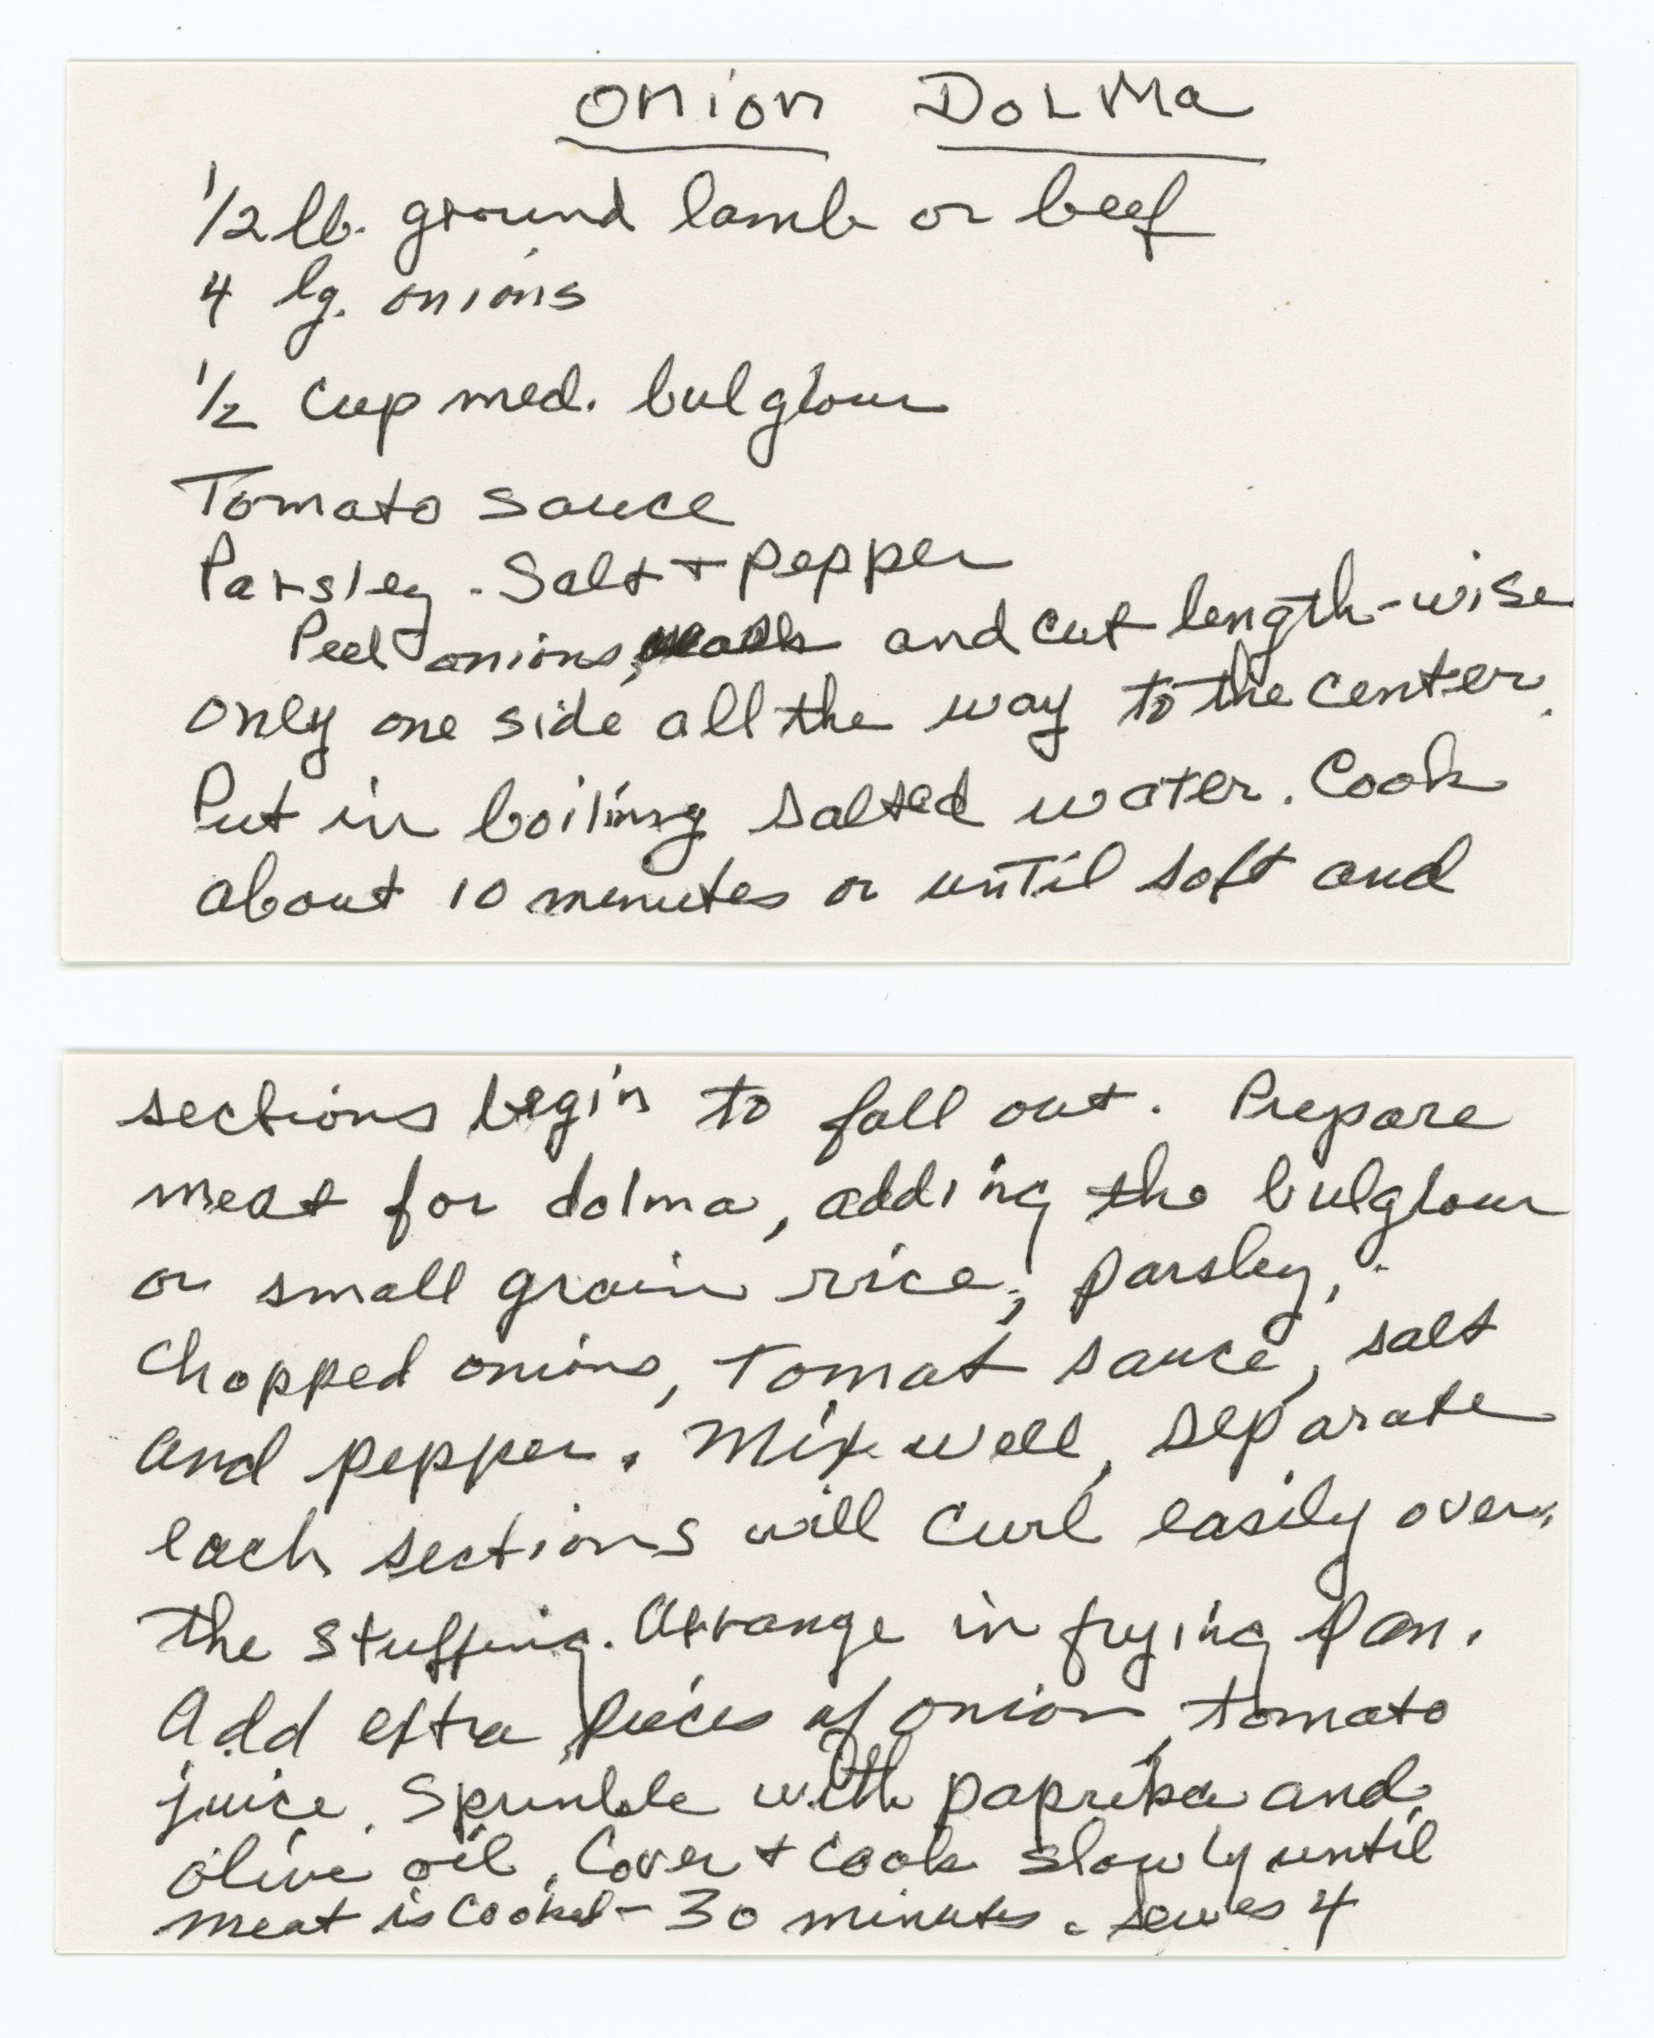 Onion Dolma
1/2 lb. ground lamb or beef
4 lg. onions
1/2 cup med. bulghour
Tomato sauce
Parsley - Salt + pepper
Peel onions, and cut length-wise
only one side all the way to the center.
Put in boiling salted water. Cook
about 10 minutes or until soft and
sections begin to fall out. Prepare
meat for dolma, adding the bulghour
or small grain rice, parsley,
chopped onions, tomat sauce, salt
and pepper. Mix well, separate
each sections will curl easily over
the stuffing. Arrange in frying pan.
Add extra pieces of onion, tomato
juice. Sprinkle with paprika and
olive oil. Cover + cook slowly until
meat is cooked - 30 minutes. serves 4